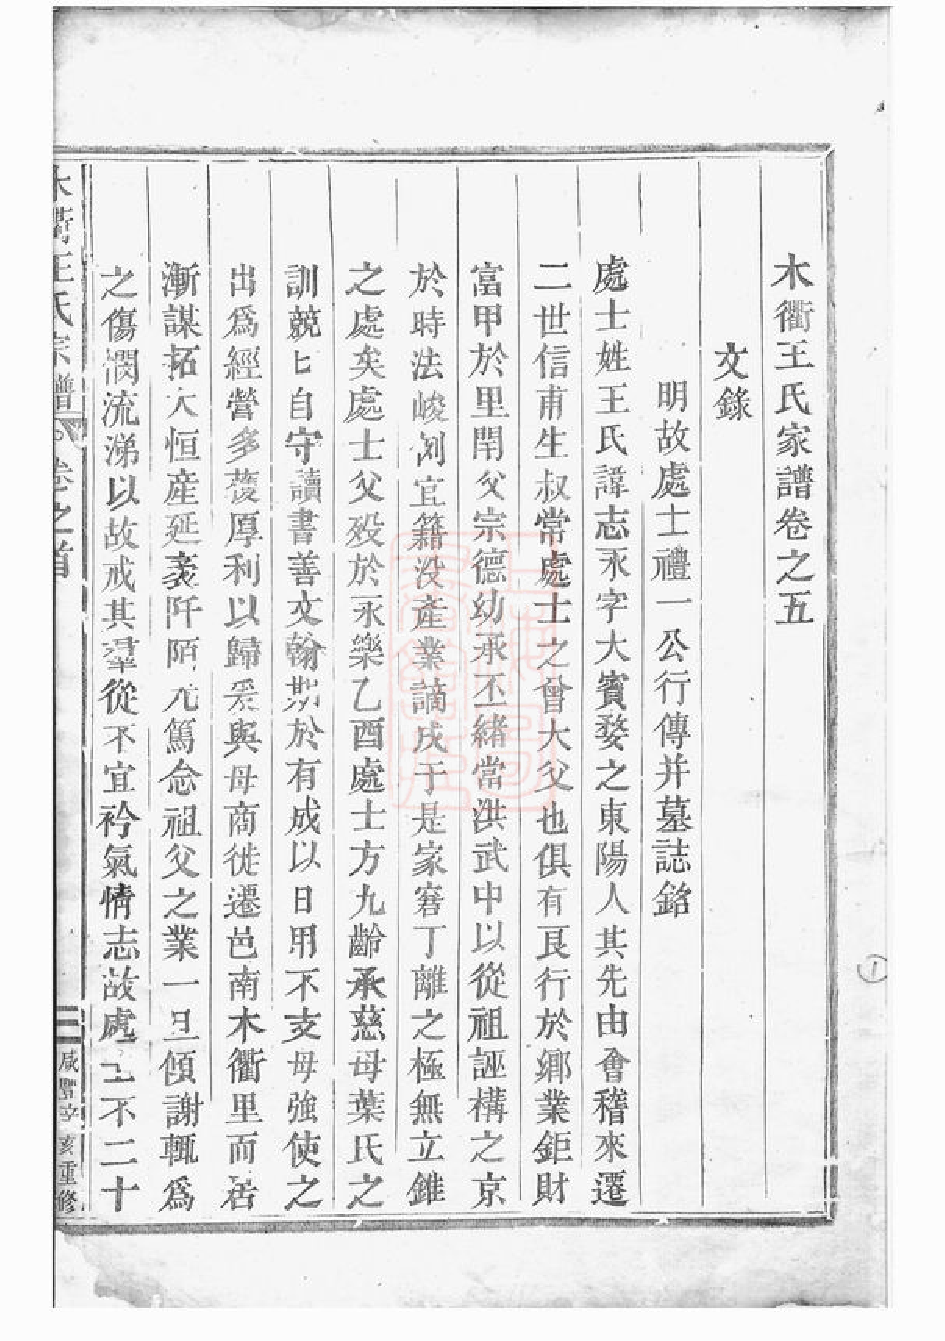 木衢王氏家譜卷之五
文錄
明故處士禮一公行傳并墓誌銘
處士姓王氏諱志永字大賓婺之東陽人其先由會稽來遷
二世信甫生叔常處士之曾大父也俱有良行於鄉業鉅財
富甲於里閈父宗德幼承丕緒當洪武中以從祖誣構之京
於時法峻例宜籍没產業謫戍于是家窘丁離之極無立錐
之處矣處士父殁於永樂乙酉處士方九齡承慈母葉氏之
訓兢匕自守讀書善文翰期於有成以日用不支母強使之
出爲經營多蓑厚利以歸爰與母商徙遷邑南木衢里而居
漸謀拓大恒產延袤阡陌尤篤念祖父之業一旦傾謝輒爲
之傷憫流涕以故戒其羣從不宜衿氣情志故處士不二十
木衢王氏宗譜 卷之首 二 咸豐辛亥重修
1